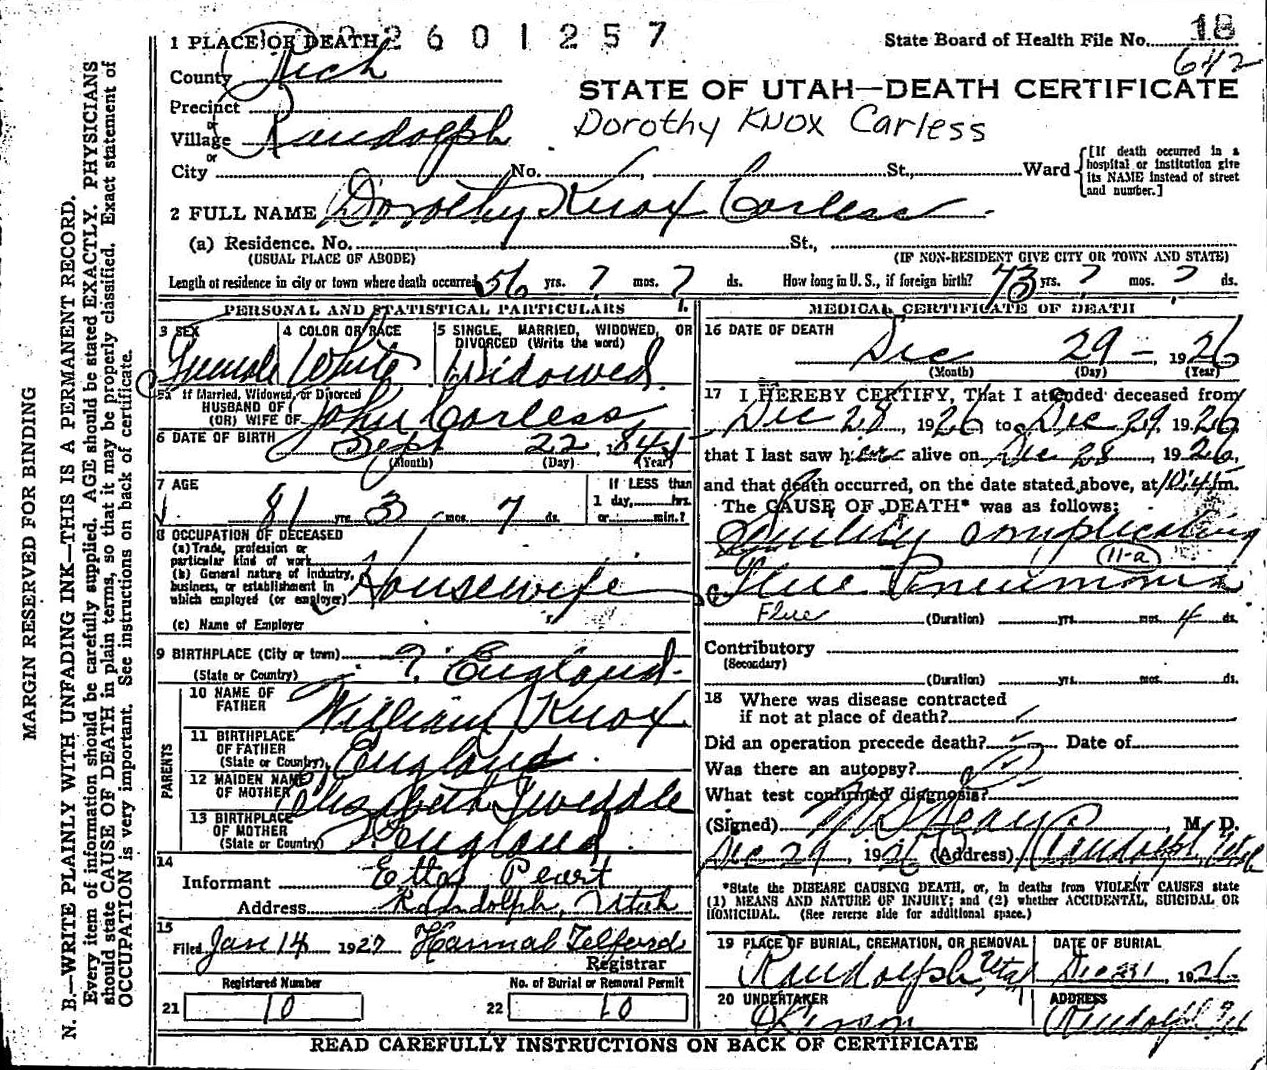 1 PLACE OF DEATH 2601257
State Board of Health File No. 18
642
County Rich
STATE OF UTAH—DEATH CERTIFICATE
Precinct
or
Village Randolph
Dorothy Knox Carless
or
City No. St., Ward
[If death occurred in a hospital or institution give its NAME instead of street and number.]
2 FULL NAME Dorothy Knox Corless
(a) Residence. No. St.,
(USUAL PLACE OF ABODE) (IF NON-RESIDENT GIVE CITY OR TOWN AND STATE)
Length of residence in city or town where death occurred 56 yrs. ? mos. ? ds. How long in U. S., if foreign birth? 73 yrs. ? mos. ? ds.
PERSONAL AND STATISTICAL PARTICULARS
3 SEX 4 COLOR OR RACE 5 SINGLE, MARRIED, WIDOWED, OR DIVORCED (Write the word)
Female White Widowed
5a If Married, Widowed, or Divorced
HUSBAND OF
(OR) WIFE OF John Corless
6 DATE OF BIRTH Sept 22, 184
(Month) (Day) (Year)
7 AGE
81 yrs. 3 mos. 7 ds.
If LESS than
1 day, hrs.
or min.?
8 OCCUPATION OF DECEASED
(a) Trade, profession or
particular kind of work
(b) General nature of industry,
business, or establishment in
which employed (or employer) Housewife
(c) Name of Employer
9 BIRTHPLACE (City or town) ? England
(State or Country)
PARENTS
10 NAME OF
FATHER William Knox
11 BIRTHPLACE
OF FATHER
(State or Country) England
12 MAIDEN NAME
OF MOTHER Elizabeth Tweddle
13 BIRTHPLACE
OF MOTHER
(State or Country) England
14
Informant Etta Peart
Address Randolph, Utah
15
Filed Jan 14 1927 Hannah Telford
Registrar
Registered Number No. of Burial or Removal Permit
21 10 22 10
MEDICAL CERTIFICATE OF DEATH
16 DATE OF DEATH
Dec 29 - , 1926
(Month) (Day) (Year)
17 I HEREBY CERTIFY, That I attended deceased from
Dec 28, 1926 to Dec 29, 1926
that I last saw her alive on Dec 28, 1926,
and that death occurred, on the date stated above, at m.
The CAUSE OF DEATH* was as follows:
complicating
11-a
Flue Pneumonia
Flue (Duration) yrs. mos. 4 ds.
Contributory
(Secondary)
(Duration) yrs. mos. ds.
18 Where was disease contracted
if not at place of death?
Did an operation precede death? Date of
Was there an autopsy?
What test confirmed diagnosis?
(Signed) , M. D.
Dec 29, 1926 (Address) Randolph, Utah
*State the DISEASE CAUSING DEATH, or, in deaths from VIOLENT CAUSES state
(1) MEANS AND NATURE OF INJURY; and (2) whether ACCIDENTAL, SUICIDAL OR
HOMICIDAL. (See reverse side for additional space.)
19 PLACE OF BURIAL, CREMATION, OR REMOVAL DATE OF BURIAL
Randolph, Utah Dec 31, 1926
20 UNDERTAKER ADDRESS
Randolph Ut
READ CAREFULLY INSTRUCTIONS ON BACK OF CERTIFICATE
MARGIN RESERVED FOR BINDING
N. B.—WRITE PLAINLY WITH UNFADING INK—THIS IS A PERMANENT RECORD.
Every item of information should be carefully supplied. AGE should be stated EXACTLY. PHYSICIANS
should state CAUSE OF DEATH in plain terms, so that it may be properly classified. Exact statement of
OCCUPATION is very important. See instructions on back of certificate.